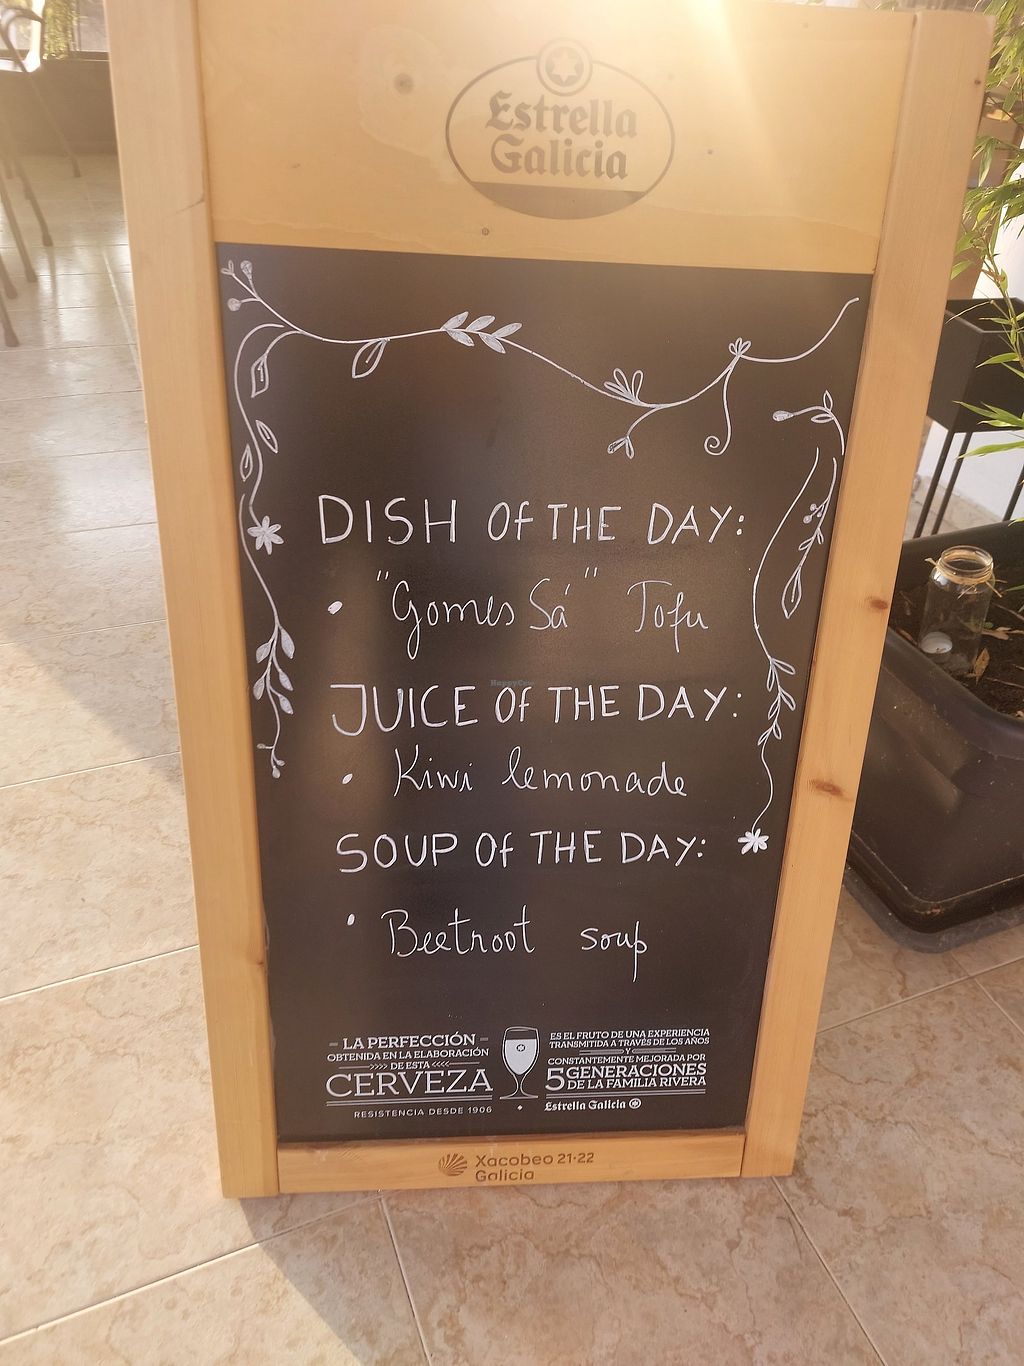 Estrella
Galicia
DISH OF THE DAY:
• "Gomes Sá" Tofu
JUICE OF THE DAY:
• Kiwi lemonade
SOUP OF THE DAY:
• Beetroot soup
HappyCow
– LA PERFECCIÓN –
OBTENIDA EN LA ELABORACIÓN
>>>> DE ESTA <<<<
CERVEZA
RESISTENCIA DESDE 1906
ES EL FRUTO DE UNA EXPERIENCIA
TRANSMITIDA A TRAVÉS DE LOS AÑOS
Y
CONSTANTEMENTE MEJORADA POR
5 GENERACIONES
DE LA FAMILIA RIVERA
Estrella Galicia
Xacobeo 21·22
Galicia